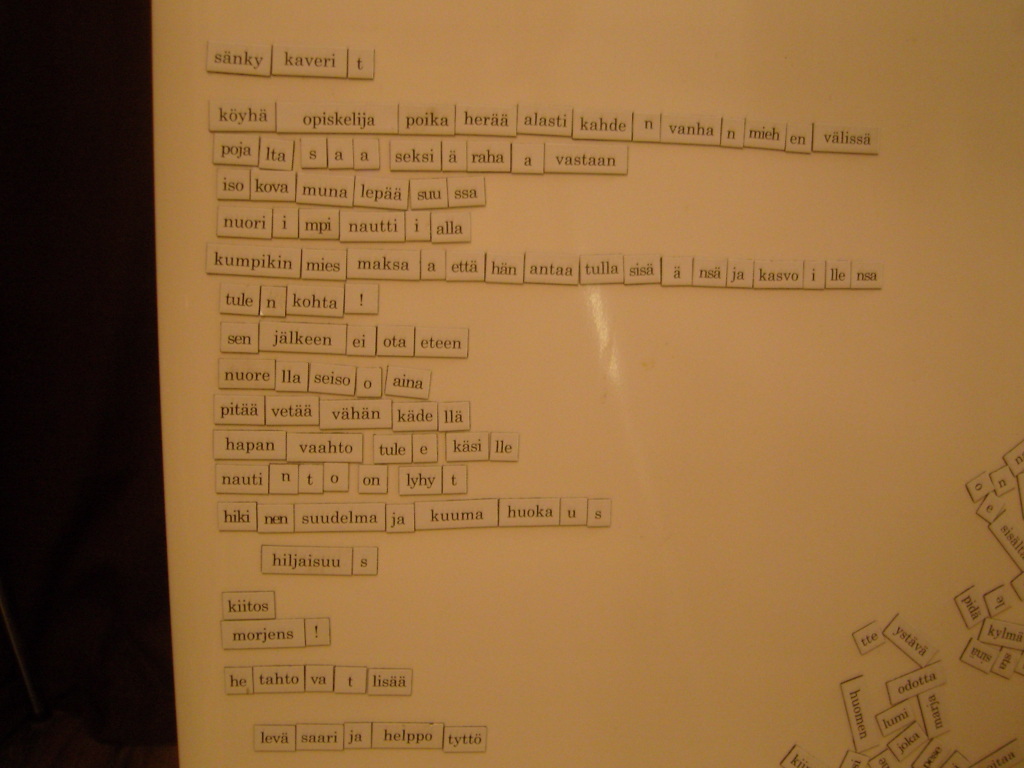 sänky kaveri t
köyhä opiskelija poika herää alasti kahde n vanha n mieh en välissä
poja lta s a a seksi ä raha a vastaan
iso kova muna lepää suu ssa
nuori i mpi nautti i alla
kumpikin mies maksa a että hän antaa tulla sisä ä nsä ja kasvo i lle nsa
tule n kohta !
sen jälkeen ei ota eteen
nuore lla seiso o aina
pitää vetää vähän käde llä
hapan vaahto tule e käsi lle
nauti n t o on lyhy t
hiki nen suudelma ja kuuma huoka u s
hiljaisuu s
kiitos
morjens !
he tahto va t lisää
levä saari ja helppo tyttö
n
o
e
pidä le
kylmä
sinä sta
tte ystävä
odotta
huomen lumi marja
joka